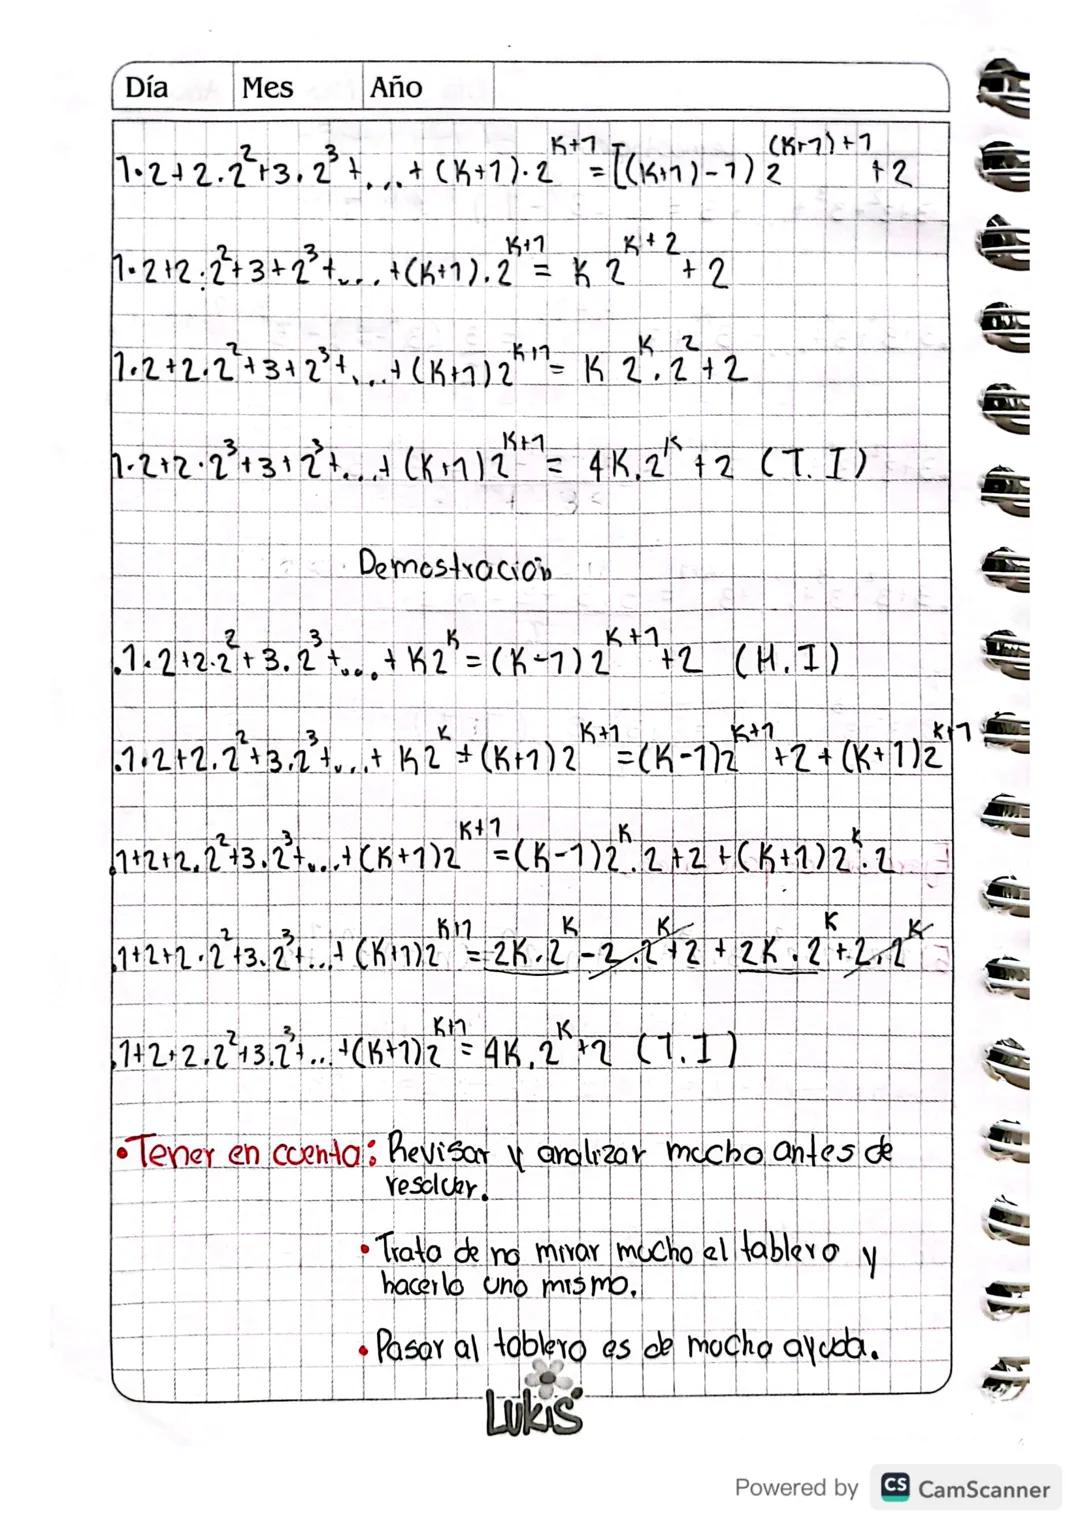 Día Mes Año
1·2+2·2²+3·2³+...+(K+1)·2^(K+1) = [(K+1)-1) 2^((K+1)+1) +2
1·2+2·2²+3+2³+...+(K+1)·2^(K+1) = K 2^(K+2) + 2
1·2+2·2²+3+2³+...+(K+1)2^(K+1) = K 2^K · 2² + 2
1·2+2·2³+3+2³+...+(K+1)2^(K+1) = 4K.2^K + 2 (T.I)
Demostración
.1·2+2·2²+3.2³+...+K2^K = (K-1)2^(K+1) +2 (H.I)
.1·2+2.2²+3.2³+...+K2^K+(K+1)2^(K+1) = (K-1)2^(K+1) +2+(K+1)2^(K+1)
.1+2+2.2²+3.2³+...+(K+1)2^(K+1) = (K-1)2^K.2+2+(K+1)2^K.2
.1+2+2·2²+3.2³+...+(K+1)2^(K+1) = 2K.2^K-2.2^K+2+2K.2^K+2.2^K
.1+2+2.2²+3.2³+...+(K+1)2^(K+1) = 4K.2^K+2 (T.I)
• Tener en cuenta: Revisar y analizar mucho antes de
resolver.
• Trata de no mirar mucho el tablero y
hacerlo uno mismo.
• Pasar al tablero es de mucha ayuda.
LUKIS
Powered by CS CamScanner